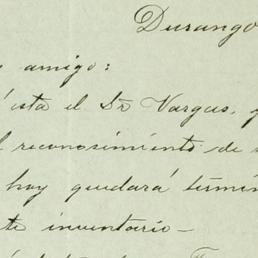 Durango
amigo:
está el Sr Vargas,
reconosimiento de
hoy quedará
te inventario—